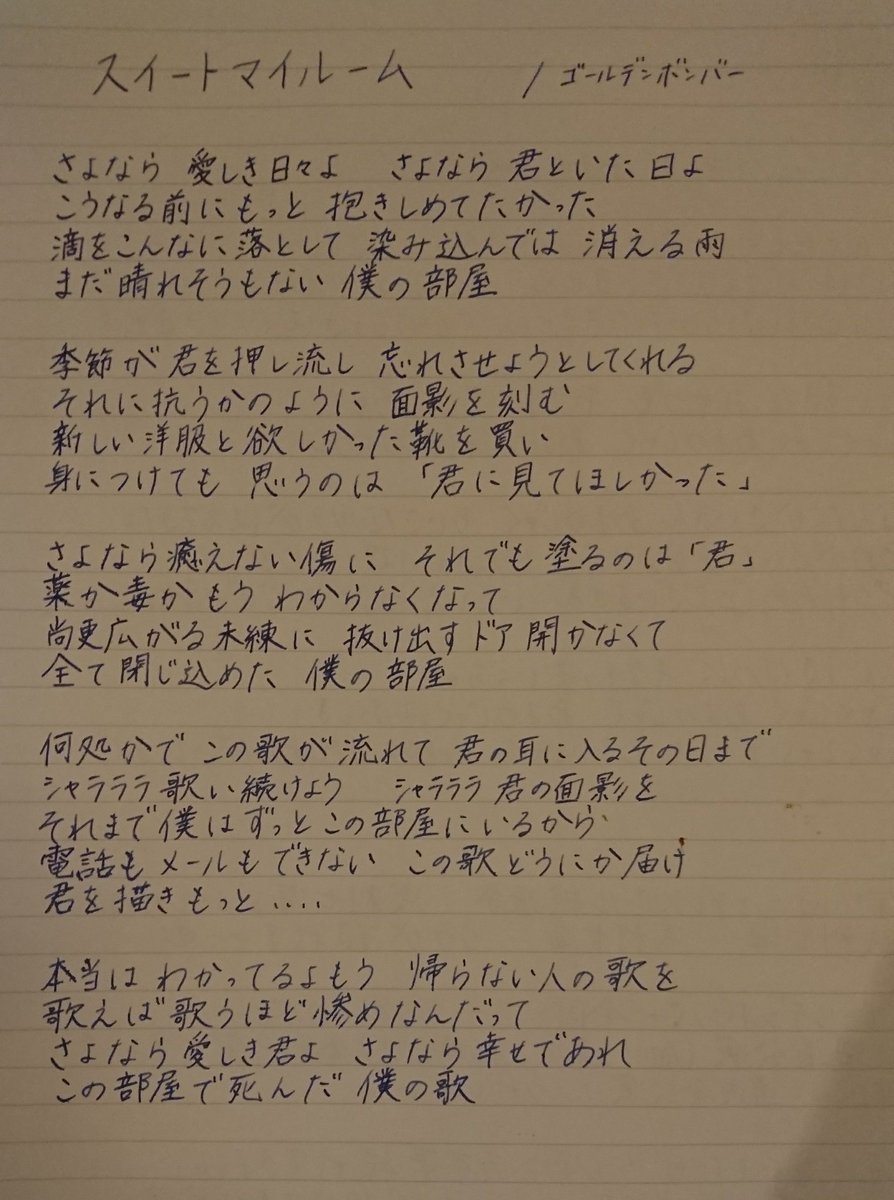 スイートマイルーム / ゴールデンボンバー
さよなら 愛しき日々よ さよなら 君といた日よ
こうなる前にもっと 抱きしめてたかった
滴をこんなに落として 染み込んでは 消える雨
まだ晴れそうもない 僕の部屋
季節が君を押し流し 忘れさせようとしてくれる
それに抗うかのように 面影を刻む
新しい洋服と欲しかった靴を買い
身につけても 思うのは 「君に見てほしかった」
さよなら癒えない傷に それでも塗るのは「君」
薬か毒か もう わからなくなって
尚更広がる未練に 抜け出すドア開かなくて
全て閉じ込めた 僕の部屋
何処かで この歌が流れて 君の耳に入るその日まで
シャラララ歌い続けよう シャラララ君の面影を
それまで僕はずっとこの部屋にいるから
電話もメールもできない この歌どうにか届け
君を描きもっと‥‥
本当は わかってるよもう 帰らない人の歌を
歌えば歌うほど惨めなんだって
さよなら愛しき君よ さよなら幸せであれ
この部屋で死んだ 僕の歌